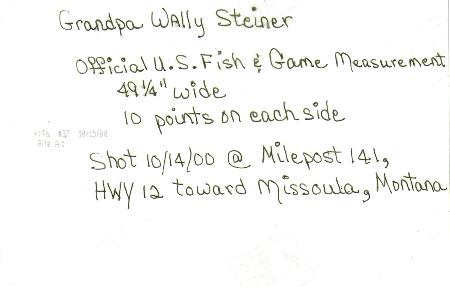 Grandpa Wally Steiner
Official U.S. Fish & Game Measurement
49 1/4" wide
10 points on each side
Rite Aid
Shot 10/14/00 @ Milepost 141,
HWY 12 toward Missoula, Montana